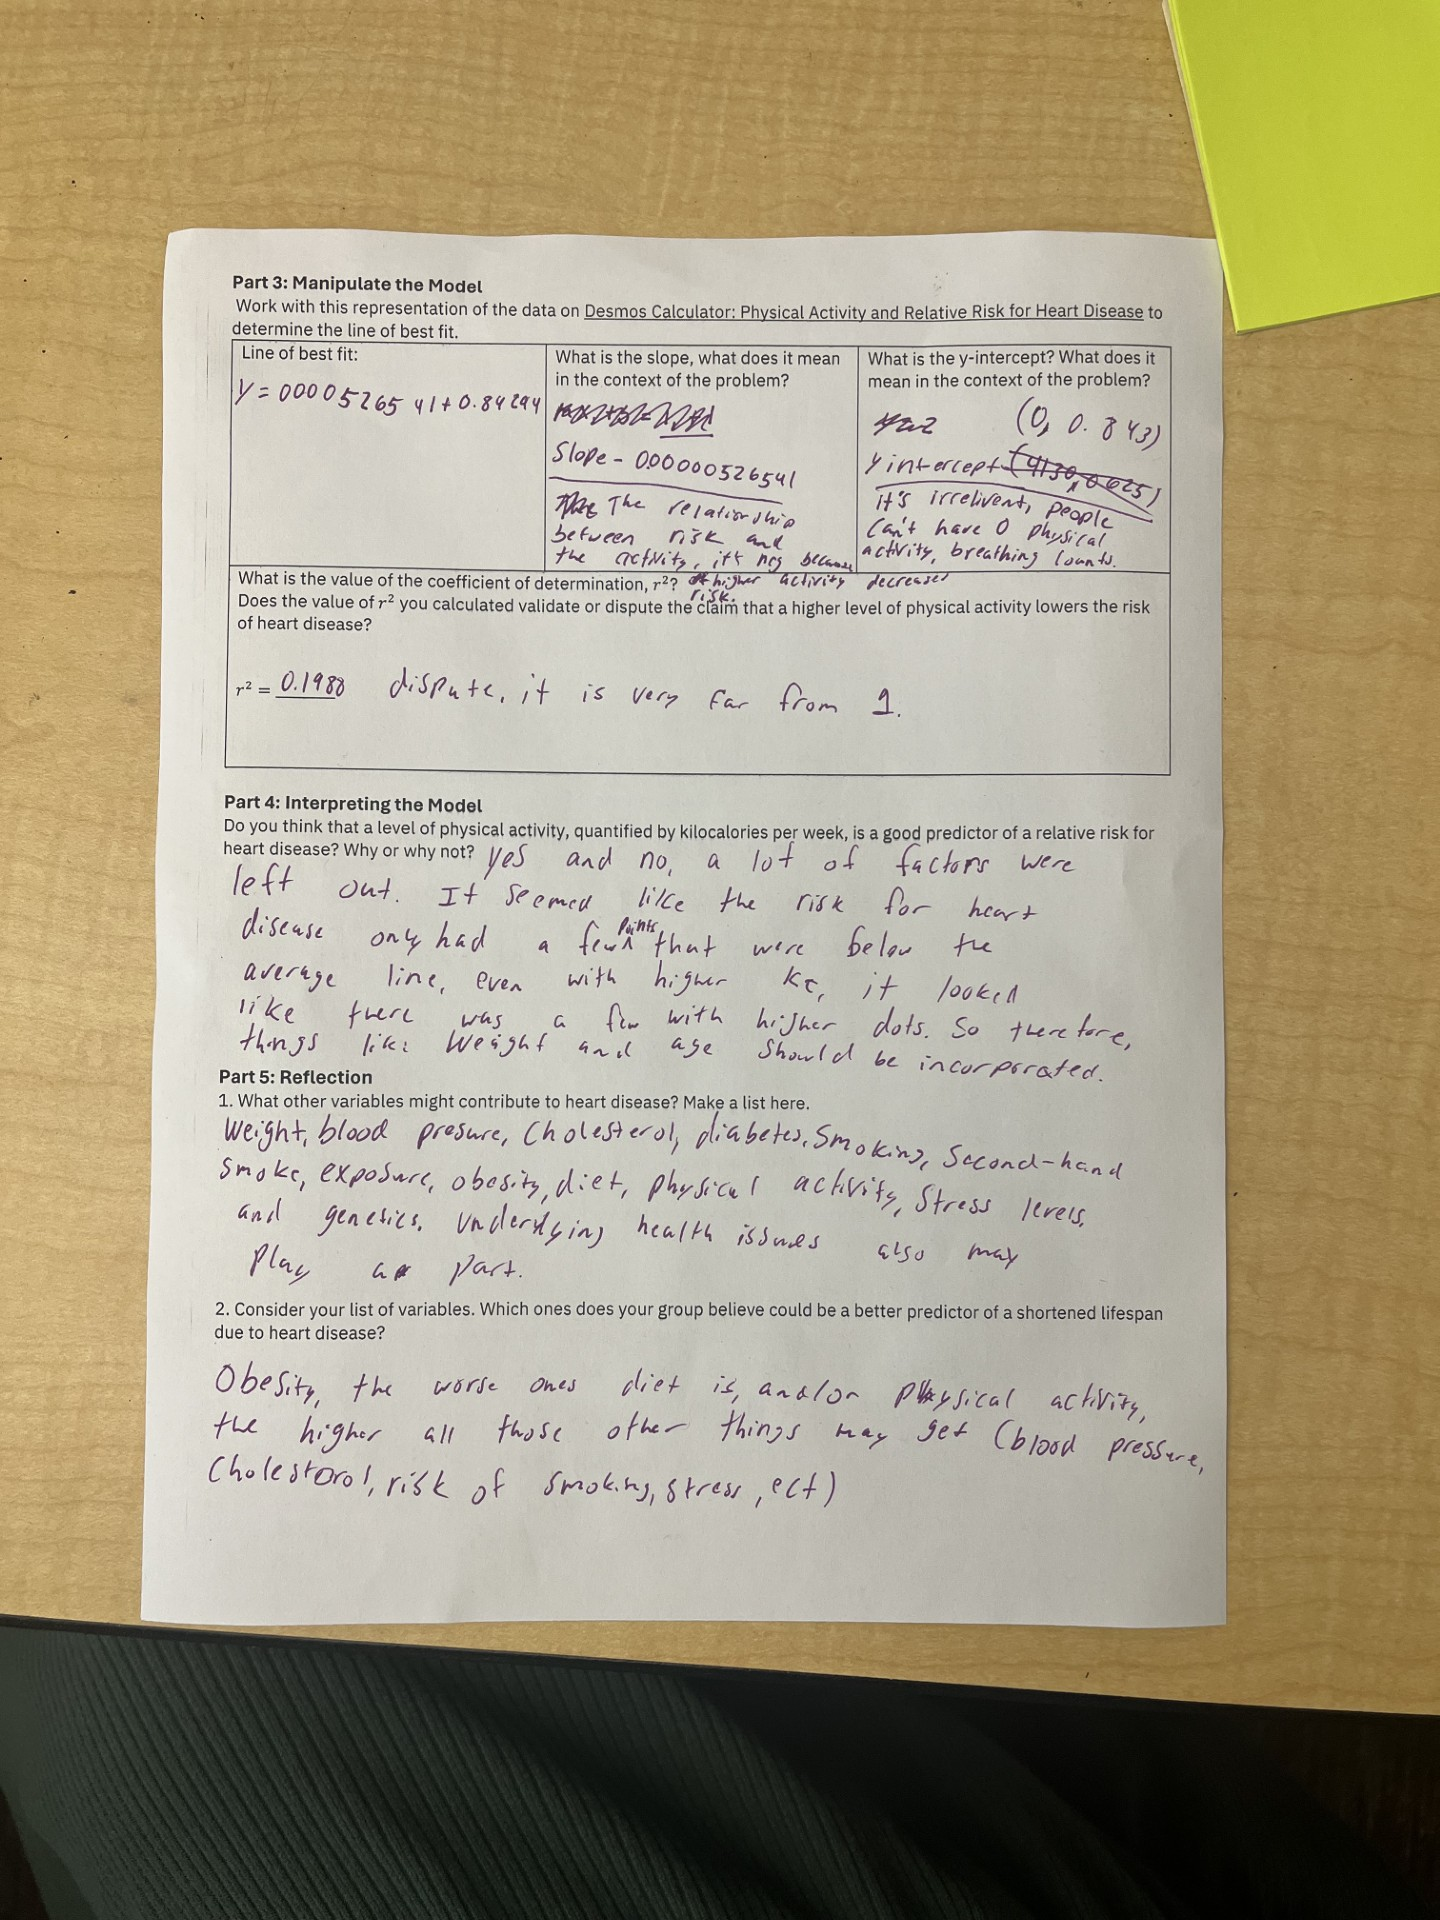 Part 3: Manipulate the Model
Work with this representation of the data on Desmos Calculator: Physical Activity and Relative Risk for Heart Disease to
determine the line of best fit.
Line of best fit:
Y = 00005265 41+0.84294
What is the slope, what does it mean
in the context of the problem?
Slope - 0.00000526541
The relationship
between risk and
the activity, it's neg because
higher activity decreases
risk.
What is the y-intercept? What does it
mean in the context of the problem?
(0, 0.843)
y intercept (4130, 0.625)
it's irrelivent, people
can't have 0 physical
activity, breathing counts.
What is the value of the coefficient of determination, r²?
Does the value of r² you calculated validate or dispute the claim that a higher level of physical activity lowers the risk
of heart disease?
r² = 0.1988 dispute, it is very far from 1.
Part 4: Interpreting the Model
Do you think that a level of physical activity, quantified by kilocalories per week, is a good predictor of a relative risk for
heart disease? Why or why not? yes and no, a lot of factors were
left out. It seemed like the risk for heart
disease only had a few points that were below the
average line, even with higher kc, it looked
like there was a few with higher dots. So therefore,
things like weight and age should be incorporated.
Part 5: Reflection
1. What other variables might contribute to heart disease? Make a list here.
Weight, blood presure, Cholesterol, diabetes, Smoking, Second-hand
smoke, exposure, obesity, diet, physical activity, Stress levels,
and genetics. Underlying health issues also may
play a part.
2. Consider your list of variables. Which ones does your group believe could be a better predictor of a shortened lifespan
due to heart disease?
Obesity, the worse ones diet is, and/or physical activity,
the higher all those other things may get (blood pressure,
Cholesterol, risk of smoking, stress, ect)